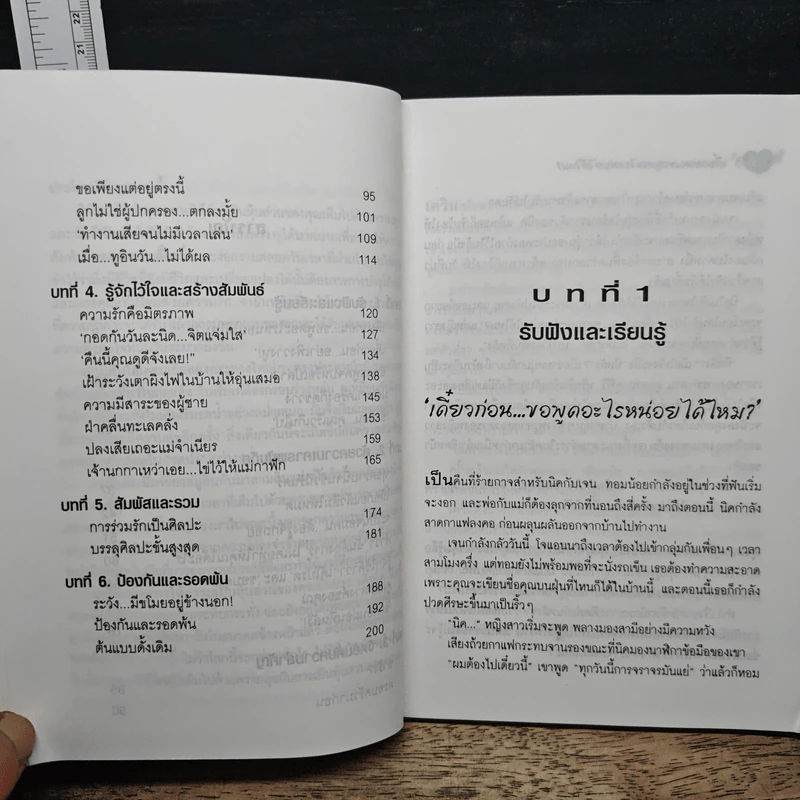 22
21
ขอเพียงแต่อยู่ตรงนี้ 95
ลูกไม่ใช่ผู้ปกครอง...ตกลงมั้ย 101
'ทำงานเสียจนไม่มีเวลาเล่น' 109
เมื่อ...ทูอินวัน...ไม่ได้ผล 114
บทที่ 4. รู้จักไว้ใจและสร้างสัมพันธ์
ความรักคือมิตรภาพ 120
'กอดกันวันละนิด...จิตแจ่มใส' 127
'คืนนี้คุณดูดีจังเลย!" 134
เฝ้าระวังเตาผิงไฟในบ้านให้อุ่นเสมอ 138
ความมีสาระของผู้ชาย 145
ฝ่าคลื่นทะเลคลั่ง 153
ปลงเสียเถอะแม่จำเนียร 159
เจ้านกกาเหว่าเอย...ไข่ไว้ให้แม่กาฟัก 165
บทที่ 5. สัมพัสและรวม
การร่วมรักเป็นศิลปะ 174
บรรลุศิลปะขั้นสูงสุด 181
บทที่ 6. ป้องกันและรอดพ้น
ระวัง...มีขโมยอยู่ข้างนอก! 188
ป้องกันและรอดพ้น 192
ต้นแบบดั้งเดิม 200
บทที่ 1
รับฟังและเรียนรู้
'เดี๋ยวก่อน...ขอพูดอะไรหน่อยได้ไหม?'
เป็นคืนที่ร้ายกาจสำหรับนิคกับเจน ทอมน้อยกำลังอยู่ในช่วงที่ฟันเริ่ม
จะงอก และพ่อกับแม่ก็ต้องลุกจากที่นอนถึงสี่ครั้ง มาถึงตอนนี้ นิคกำลัง
สาดกาแฟลงคอ ก่อนผลุนผลันออกจากบ้านไปทำงาน
เจนกำลังกลัววันนี้ โจแอนนาถึงเวลาต้องไปเข้ากลุ่มกับเพื่อนๆ เวลา
สามโมงครึ่ง แต่ทอมยังไม่พร้อมพอที่จะนั่งรถเข็น เธอต้องทำความสะอาด
เพราะคุณจะเขียนชื่อคุณบนฝุ่นที่ไหนก็ได้ในบ้านนี้ และตอนนี้เธอก็กำลัง
ปวดศีรษะขึ้นมาเป็นริ้วๆ
"นิค..." หญิงสาวเริ่มจะพูด พลางมองสามีอย่างมีความหวัง
เสียงถ้วยกาแฟกระทบจานรองขณะที่นิคมองนาฬิกาข้อมือของเขา
"ผมต้องไปเดี๋ยวนี้" เขาพูด "ทุกวันนี้การจราจรมันแย่" ว่าแล้วก็หอม